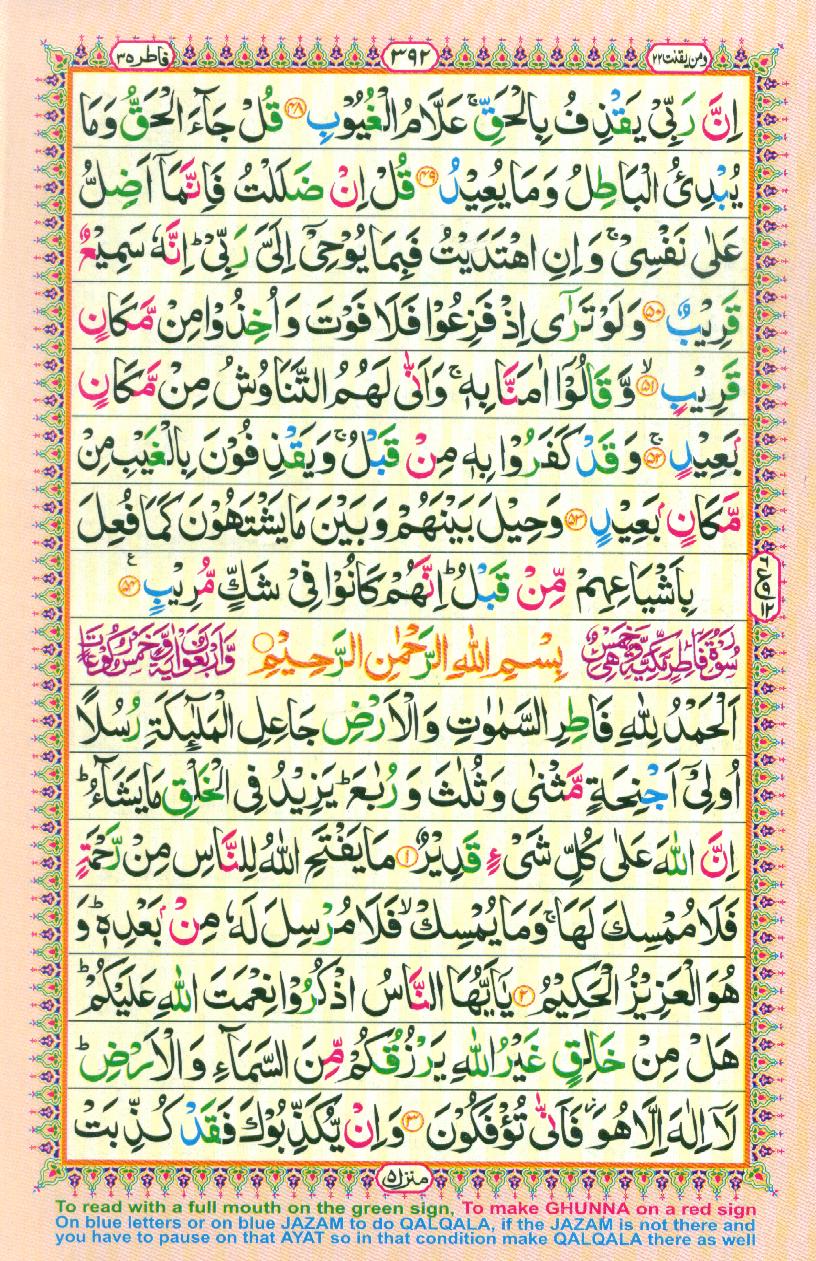 ومن یقنت ۲۲ ۳۹۲ فاطر ۳۵
اِنَّ رَبِّیْ یَقْذِفُ بِالْحَقِّ ۚ عَلَّامُ الْغُیُوْبِ ﴿۴۸﴾ قُلْ جَآءَ الْحَقُّ وَمَا
یُبْدِئُ الْبَاطِلُ وَمَا یُعِیْدُ ﴿۴۹﴾ قُلْ اِنْ ضَلَلْتُ فَاِنَّمَاۤ اَضِلُّ
عَلٰی نَفْسِیْ ۚ وَاِنِ اهْتَدَیْتُ فَبِمَا یُوْحِیْۤ اِلَیَّ رَبِّیْ ؕ اِنَّهٗ سَمِیْعٌ
قَرِیْبٌ ﴿۵۰﴾ وَلَوْ تَرٰۤی اِذْ فَزِعُوْا فَلَا فَوْتَ وَاُخِذُوْا مِنْ مَّكَانٍ
قَرِیْبٍ ﴿۵۱﴾ ۙ وَّقَالُوْۤا اٰمَنَّا بِهٖ ۚ وَاَنّٰی لَهُمُ التَّنَاوُشُ مِنْ مَّكَانٍۭ
بَعِیْدٍ ﴿۵۲﴾ ۚۖ وَقَدْ كَفَرُوْا بِهٖ مِنْ قَبْلُ ۚ وَیَقْذِفُوْنَ بِالْغَیْبِ مِنْ
مَّكَانٍۭ بَعِیْدٍ ﴿۵۳﴾ وَحِیْلَ بَیْنَهُمْ وَبَیْنَ مَا یَشْتَهُوْنَ كَمَا فُعِلَ
بِاَشْیَاعِهِمْ مِّنْ قَبْلُ ؕ اِنَّهُمْ كَانُوْا فِیْ شَكٍّ مُّرِیْبٍ ﴿۵۴﴾ ع
سُوْرَةُ فَاطِرٍ مَّكِّیَّةٌ وَّهِیَ خَمْسٌ بِسْمِ اللّٰهِ الرَّحْمٰنِ الرَّحِیْمِ وَّاَرْبَعُوْنَ اٰیَةً وَّخَمْسُ رُكُوْعَاتٍ
اَلْحَمْدُ لِلّٰهِ فَاطِرِ السَّمٰوٰتِ وَالْاَرْضِ جَاعِلِ الْمَلٰٓئِكَةِ رُسُلًا
اُولِیْۤ اَجْنِحَةٍ مَّثْنٰی وَثُلٰثَ وَرُبٰعَ ؕ یَزِیْدُ فِی الْخَلْقِ مَا یَشَآءُ ؕ
اِنَّ اللّٰهَ عَلٰی كُلِّ شَیْءٍ قَدِیْرٌ ﴿۱﴾ مَا یَفْتَحِ اللّٰهُ لِلنَّاسِ مِنْ رَّحْمَةٍ
فَلَا مُمْسِكَ لَهَا ۚ وَمَا یُمْسِكْ ۙ فَلَا مُرْسِلَ لَهٗ مِنْۢ بَعْدِهٖ ؕ وَ
هُوَ الْعَزِیْزُ الْحَكِیْمُ ﴿۲﴾ یٰۤاَیُّهَا النَّاسُ اذْكُرُوْا نِعْمَتَ اللّٰهِ عَلَیْكُمْ ؕ
هَلْ مِنْ خَالِقٍ غَیْرُ اللّٰهِ یَرْزُقُكُمْ مِّنَ السَّمَآءِ وَالْاَرْضِ ؕ
لَاۤ اِلٰهَ اِلَّا هُوَ ۖ فَاَنّٰی تُؤْفَكُوْنَ ﴿۳﴾ وَاِنْ یُّكَذِّبُوْكَ فَقَدْ كُذِّبَتْ
منزل ۵
To read with a full mouth on the green sign, To make GHUNNA on a red sign
On blue letters or on blue JAZAM to do QALQALA, if the JAZAM is not there and
you have to pause on that AYAT so in that condition make QALQALA there as well